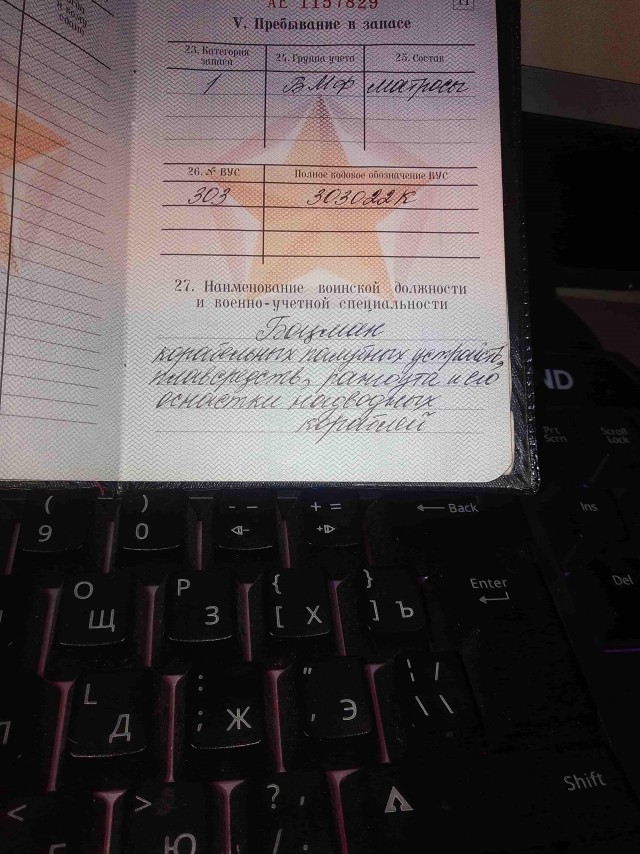 АЕ 1157829
11
V. Пребывание в запасе
23. Категория запаса
24. Группа учета
25. Состав
1
ВМФ
матросы
26. № ВУС
Полное кодовое обозначение ВУС
303
303022К
27. Наименование воинской должности
и военно-учетной специальности
Боцман
корабельных палубных устройств,
плавсредств, рангоута и его
оснастки надводных
кораблей
ND
Prt Scrn
Scroll Lock
( 9
) 0
- -
+ =
← Back
Ins
O Щ
P З
{ [ Х
} ] Ъ
Enter
Del
L Д
: ; Ж
" , Э
¦ / \ \
< Б
> Ю
? , / .
Shift